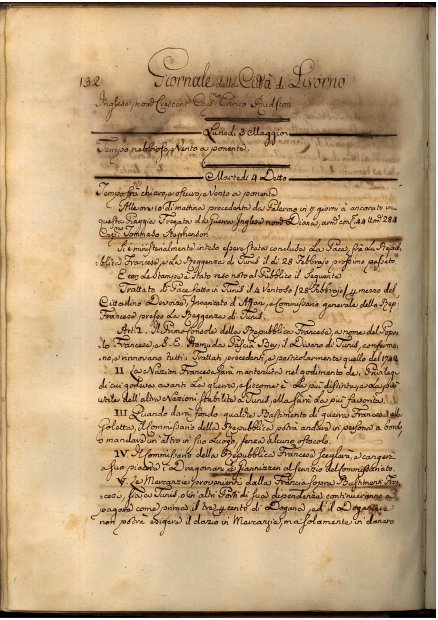 132 Giornale della Città di Livorno
Inglese, nom.e Crescent Cap.n Enrico Audston.
Lunedì 3 Maggio
Tempo nebbioso, e Vento a ponente.
Martedì 4 Detto
Tempo frà chiaro, e scuro, e Vento a ponente
All'ore 10 di mattina procedente da Palermo in 5 giorni à ancorato in
questa Piaggia Fregata da Guerra Inglese nom.e Diana, arm. con C. 44 Uom. 284
Cap.n Tommaso Stephenson
Si è ministerialmente inteso essere stata conclusa La Pace, frà La Repub-
blica Francese, e La Reggenza di Tunis il dì 28 Febbrajo prossimo passato,
E con Le Stampe è stato reso noto al Pubblico il Seguente
Trattato di Pace fatto in Tunis il 4 Ventoso /28 Febbrajo/ p mezzo del
Cittadino Devoize, Incaricato d'Affari, e Commissario generale della Rep.
Francese presso La Reggenza di Tunis.
Art. I. Il Primo Console della Repubblica Francese, a nome del Popo-
lo Francese, e S. E. Hamuda Pascià Bey, il Divano di Tunis, conferma-
no, e rinnovano tutti i Trattati precedenti, e particolarmente quello del
II La Nazion Francese sarà mantenuta nel godimento de' Privilegi
di cui godeva avanti La guerra, e siccome è La più distinta, e La più
utile dell'altre Nazioni stabilite à Tunis, ella sarà La più favorita.
III Quando darà fondo qualche Bastimento di guerra Francese alla
Goletta, il Commissario della Repubblica potrà andare in persona a bordo,
o mandare un altro in suo Luogo, senza alcuno ostacolo.
IV. Il Commissario della Repubblica Francese sceglierà, e cangerà
a suo piacere i Dragomanni, e Giannizzeri al servizio del Commissariato.
V. Le Mercanzie provenienti dalla Francia sopra Bastimenti Fran-
cesi, sia a Tunis, o in altri Porti di sua dependenza continueranno a
pagare come prima il tre p cento di Dogana, ed il Doganiere
non potrà esigere il dazio in Mercanzie, ma solamente in danaro